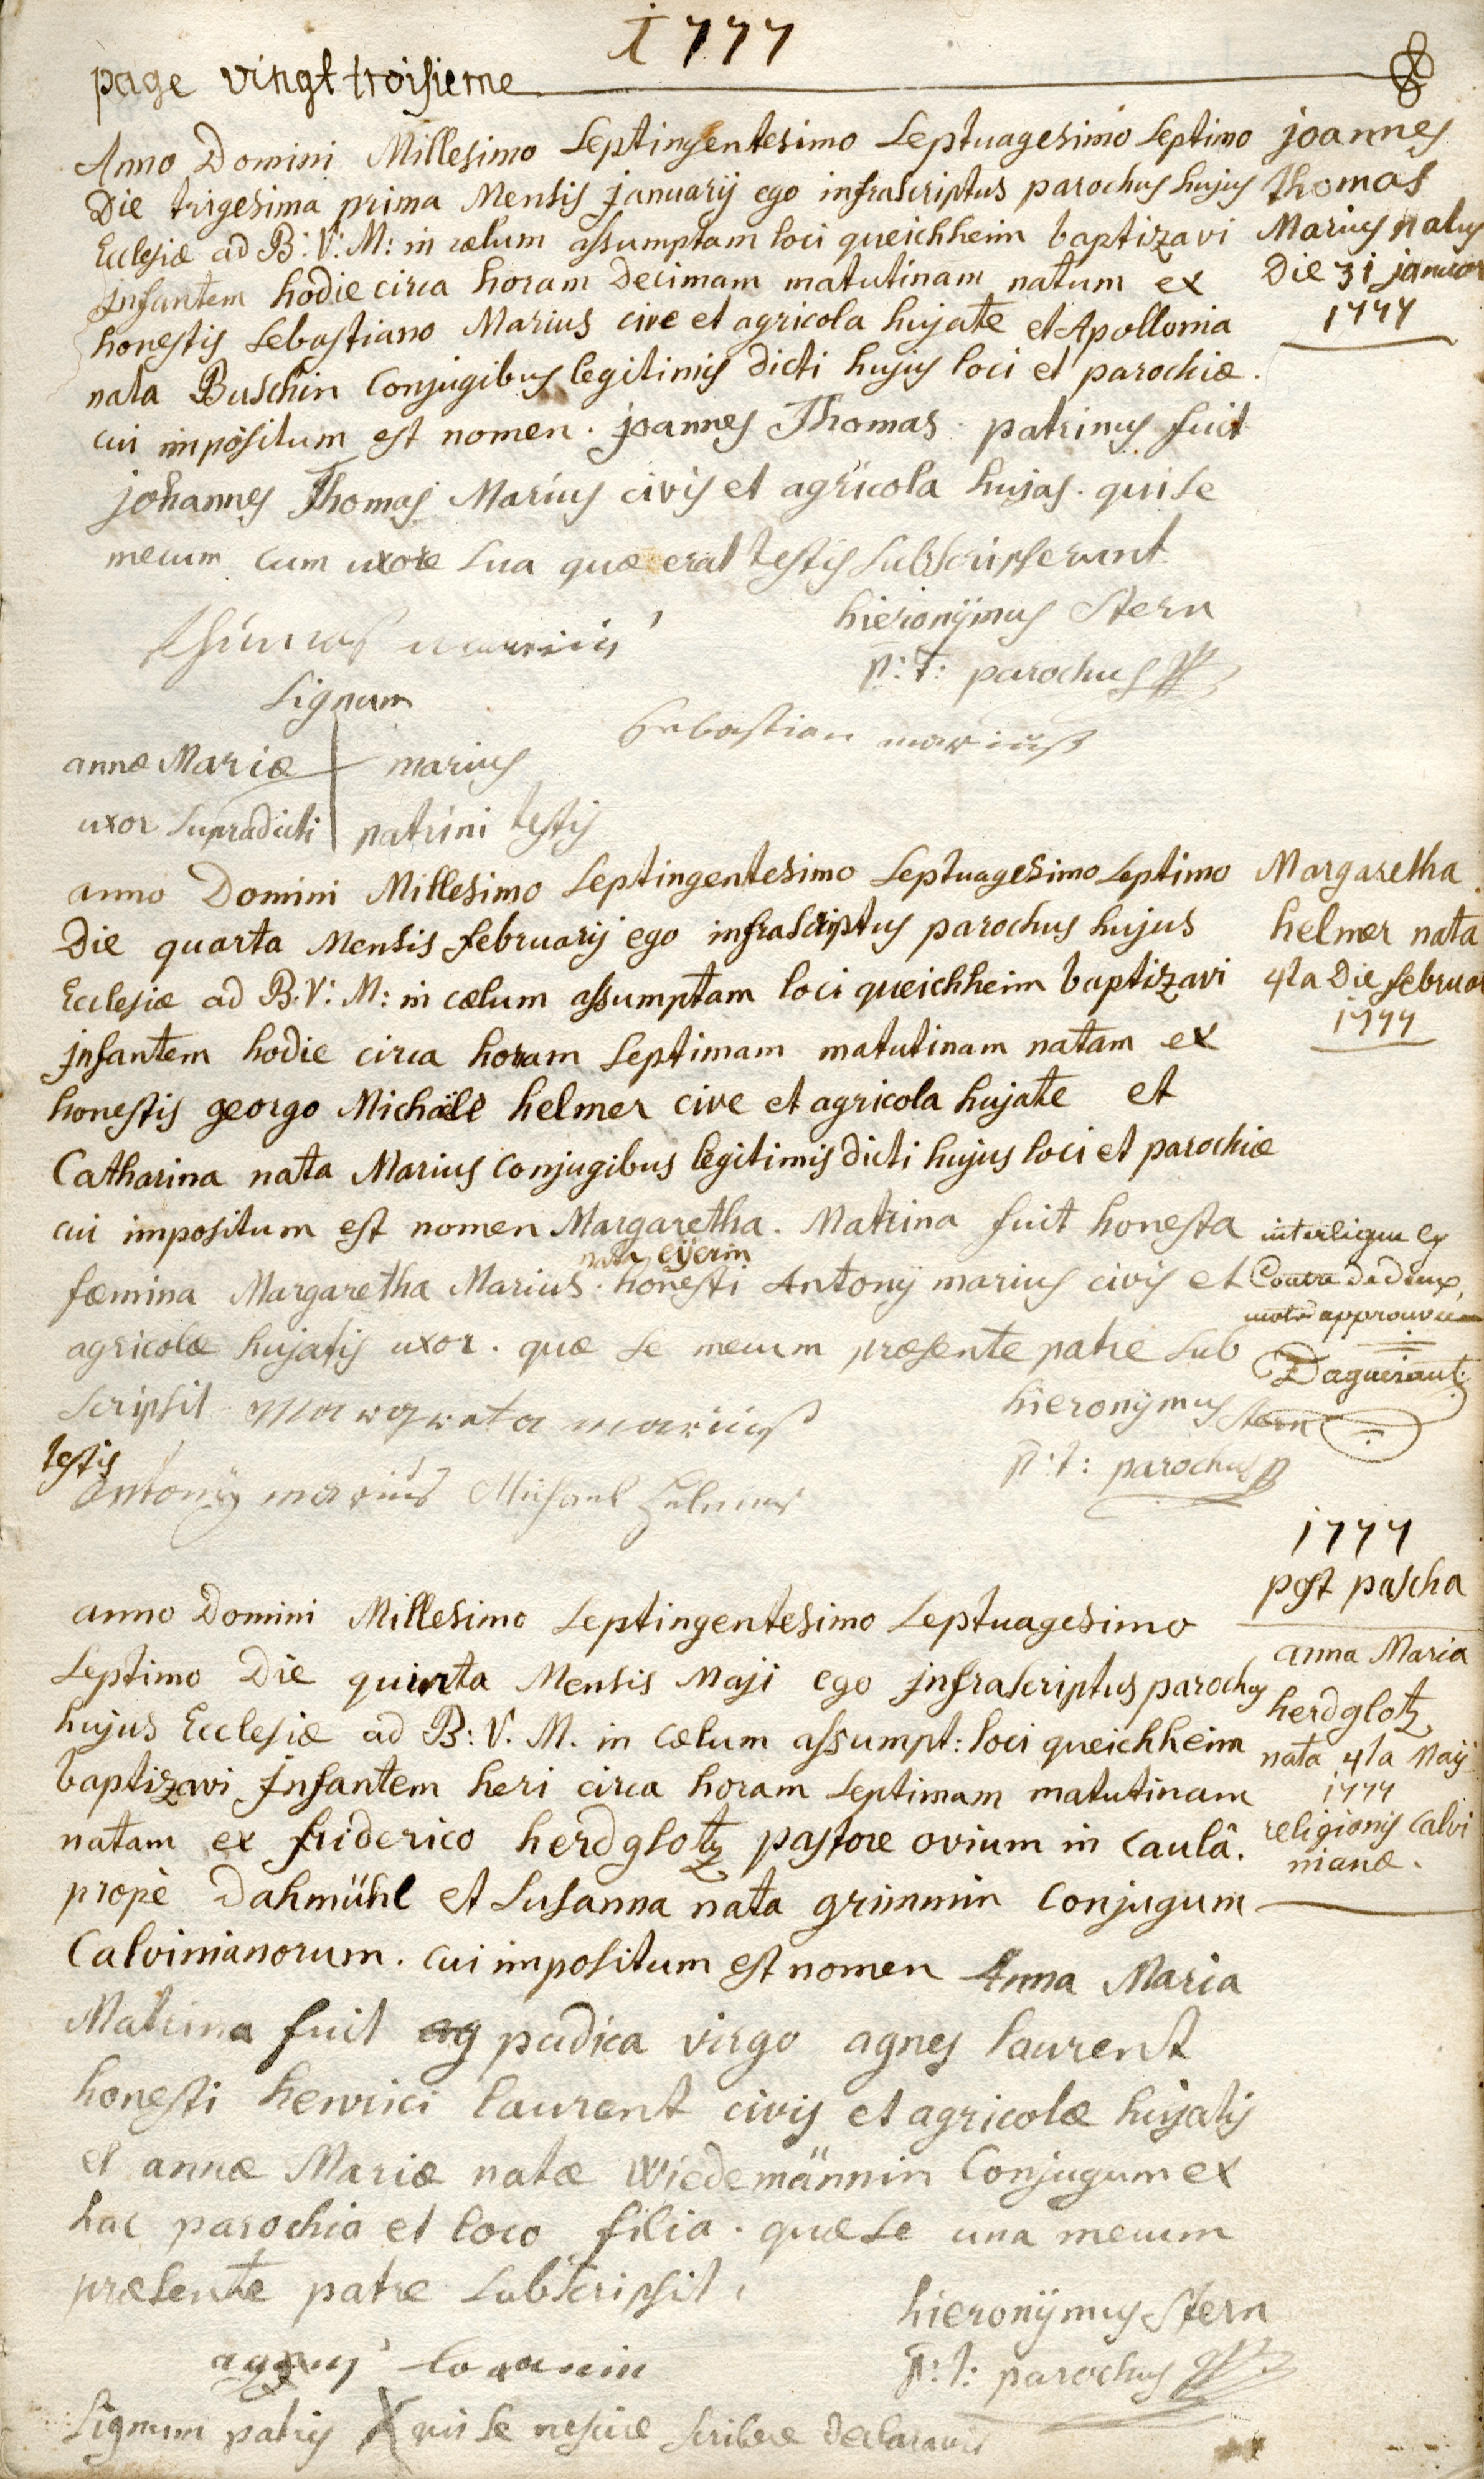 1777
page vingt troisieme
Anno Domini Millesimo Septingentesimo Septuagesimo Septimo
Die trigesima prima Mensis januarij ego infrascriptus parochus hujus
Ecclesiæ ad B: V: M: in cælum assumptam loci queichheim baptizavi
jnfantem hodie circa horam Decimam matutinam natum ex
honestis Sebastiano Marius cive et agricola hujate et Apollonia
nata Buschin Conjugibus legitimis dicti hujus loci et parochiæ.
cui impositum est nomen. joannes Thomas. patrinus fuit
johannes Thomas Marius civis et agricola hujas. qui se
mecum cum uxore sua quæ erat testis subscripserunt
joannes
thomas
Marius natus
Die 31 januar
1777
hieronÿmus Stern
p: t: parochus
Signum
Sebastian mariuß
annæ Mariæ marius
uxor supradicti patrini testis
anno Domini Millesimo Septingentesimo Septuagesimo Septimo
Die quarta Mensis februarij ego infrascriptus parochus hujus
Ecclesiæ ad B. V: M: in cælum assumptam loci queichheim baptizavi
jnfantem hodie circa horam Septimam matutinam natam ex
honestis georgo Michäle helmer cive et agricola hujate et
Catharina nata Marius Conjugibus legitimis dicti hujus loci et parochiæ
cui impositum est nomen Margaretha. Matrina fuit honesta
nata eÿerin
fæmina Margaretha Marius. honesti Antonij marius civis et
agricolæ hujatis uxor. quæ se mecum præsente patre sub
scripsit Margreta mariuß
Margaretha
helmer nata
4ta Die februar
1777
interligne et
Contre de deux
mots approuvé
Dagueraut
hieronÿmus Stern
p: t: parochus
testis
Antonÿ marius Michael Helmer
1777
post pascha
anno Domini Millesimo Septingentesimo Septuagesimo
Septimo Die quinta Mensis Maji ego jnfrascriptus parochus
hujus Ecclesiæ ad B: V. M. in Cælum assumpt: loci queichheim
baptizavi jnfantem heri circa horam Septimam matutinam
natam ex friderico herdglotz pastore ovium in Caulâ.
propè Dahmühl et Susanna nata grimmin Conjugum
Calvinianorum. cui impositum est nomen Anna Maria
Matrina fuit ag pudica virgo agnes laurent
honesti henrici laurent civis et agricolæ hujatis
et annæ Mariæ natæ Wiedemännin Conjugum ex
hac parochia et loco filia. quæ se una mecum
præsente patre subscripsit.
anna Maria
herdglotz
nata 4ta Maij
1777
religionis Calvi
nianæ.
hieronÿmus Stern
p: t: parochus
Signum patris X qui se nescire scribere declaravit